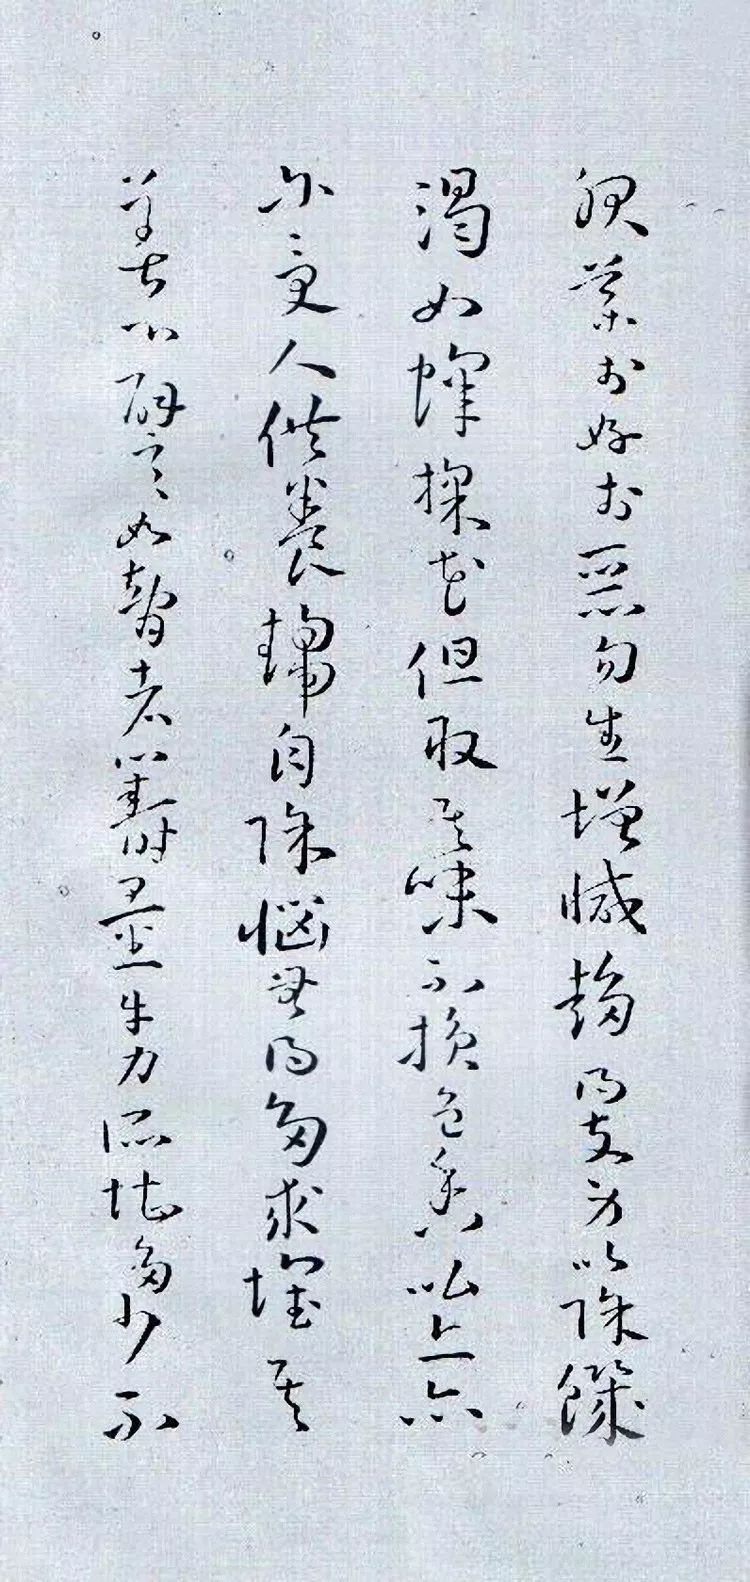 服藥於好於惡勿生增減趣得支身以除饑
渴如蜂採花但取其味不損色香比丘亦
尔受人供養趣自除惱無得多求壞其
善心譬如智者籌量牛力所堪多少不